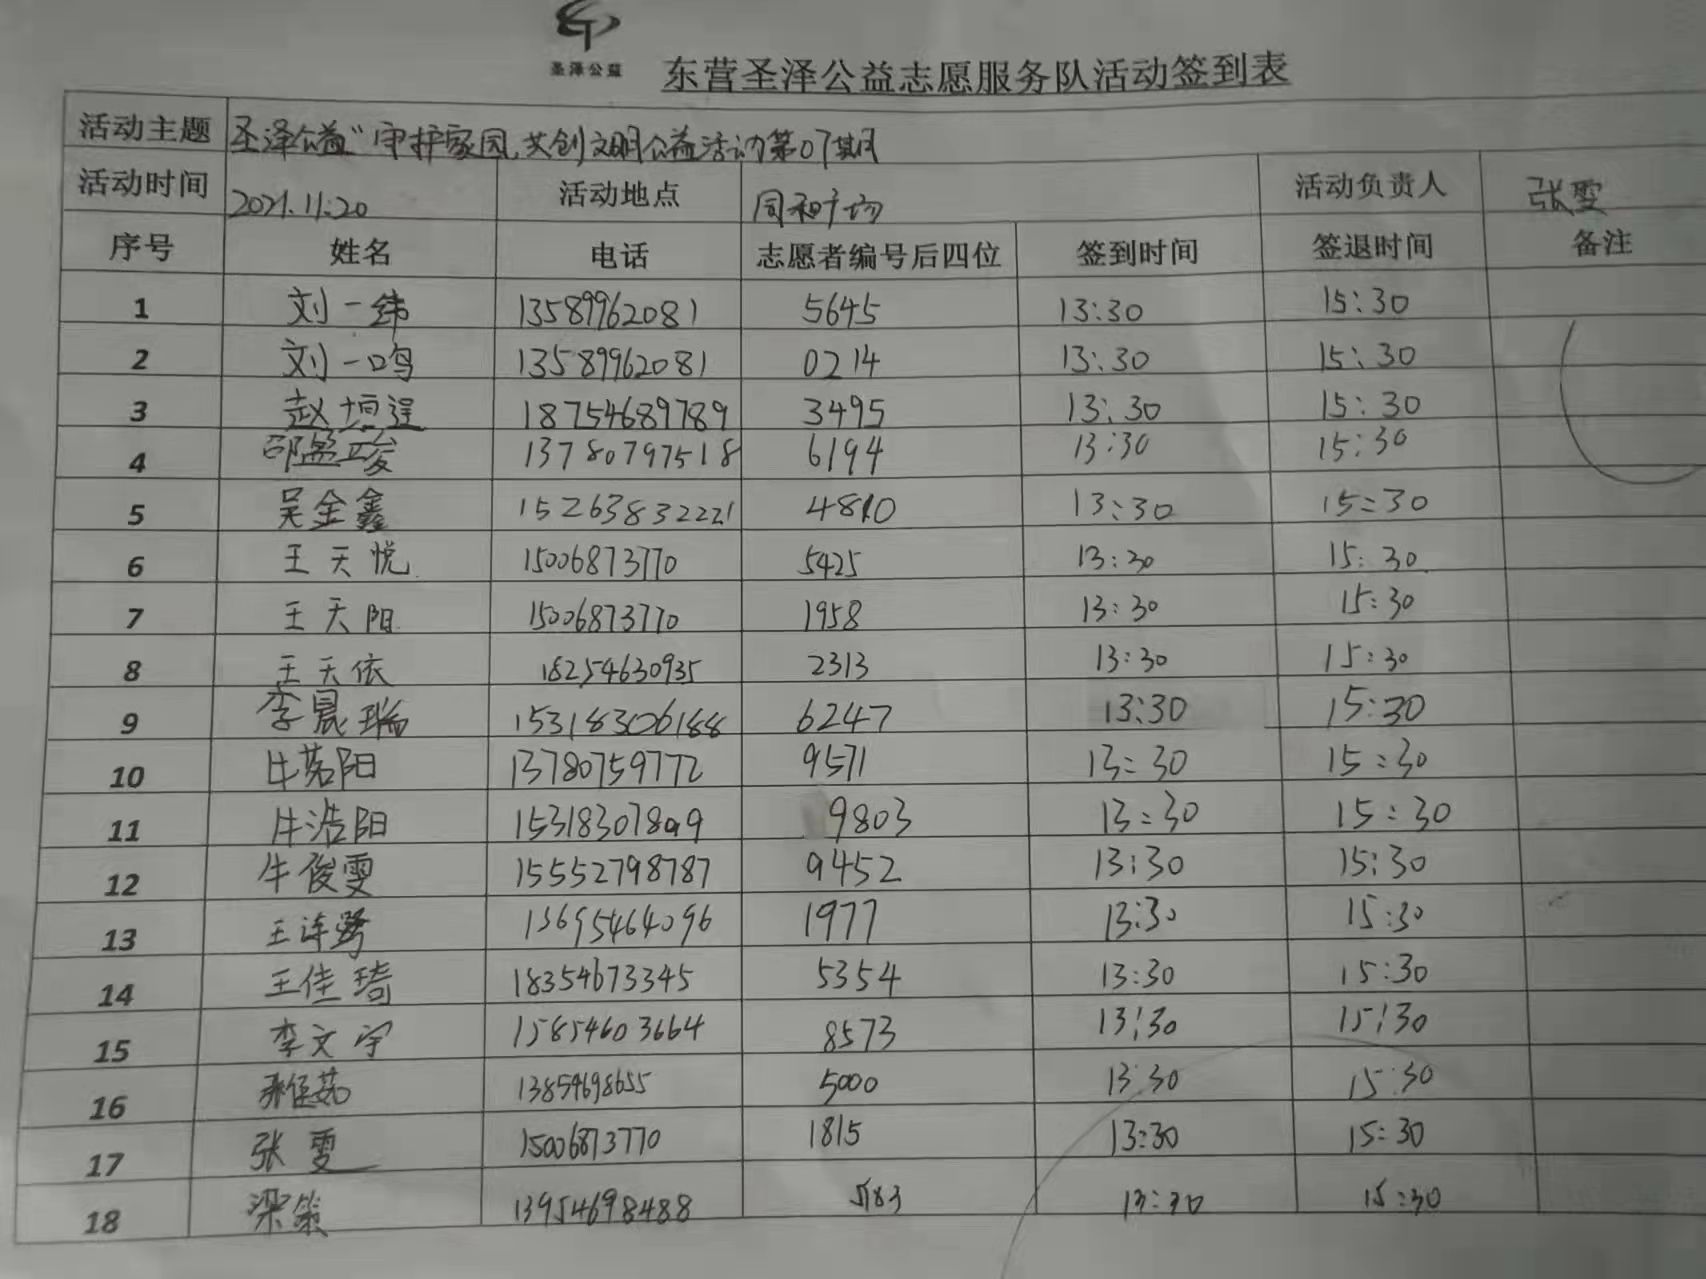 圣泽公益
东营圣泽公益志愿服务队活动签到表
活动主题 圣泽公益"守护家园,共创文明公益活动第07期
活动时间 2021.11.20 活动地点 同和广场 活动负责人 张雯
序号 姓名 电话 志愿者编号后四位 签到时间 签退时间 备注
1 刘一纬 13589962081 5645 13:30 15:30
2 刘一鸣 13589962081 0214 13:30 15:30
3 赵垣逞 18754689789 3495 13:30 15:30
4 邵盈竣 13780797518 6194 13:30 15:30
5 吴金鑫 15263832221 4810 13:30 15:30
6 王天悦 15006873770 5425 13:30 15:30
7 王天阳 15006873770 1958 13:30 15:30
8 王天依 18254630935 2313 13:30 15:30
9 李晨瑞 15318306188 6247 13:30 15:30
10 牛茗阳 13780759772 9571 13:30 15:30
11 牛浩阳 15318307899 9803 13:30 15:30
12 牛俊雯 15552798787 9452 13:30 15:30
13 王连 13695464096 1977 13:30 15:30
14 王佳琦 18354673345 5354 13:30 15:30
15 李文宇 15854603664 8573 13:30 15:30
16 13854698655 5000 13:30 15:30
17 张雯 15006873770 1815 13:30 15:30
18 梁策 13954698488 5183 13:30 15:30